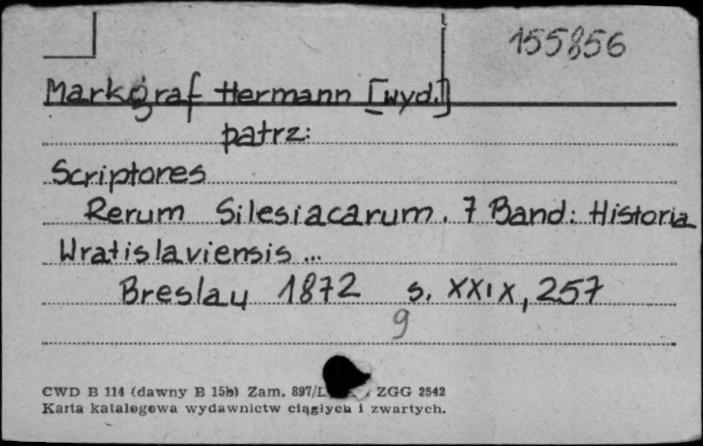 155856
Markgraf Hermann [wyd.]
patrz:
Scriptores
Rerum Silesiacarum. 7 Band: Historia
Wratislaviensis ...
Breslau 1872 s. XXIX, 257
9
CWD B 114 (dawny B 15b) Zam. 897/ ZGG 2542
Karta katalogowa wydawnictw ciągłych i zwartych.